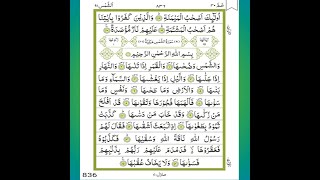 عم ٣٠
الشمس ٩١
اُولٰٓئِكَ اَصْحٰبُ الْمَيْمَنَةِ وَالَّذِيْنَ كَفَرُوْا بِاٰيٰتِنَا
هُمْ اَصْحٰبُ الْمَشْـَٔمَةِ عَلَيْهِمْ نَارٌ مُّؤْصَدَةٌ
بِسْمِ اللّٰهِ الرَّحْمٰنِ الرَّحِيْمِ
وَالشَّمْسِ وَضُحٰىهَا وَالْقَمَرِ اِذَا تَلٰىهَا وَالنَّهَارِ
اِذَا جَلّٰىهَا وَالَّيْلِ اِذَا يَغْشٰىهَا وَالسَّمَآءِ وَمَا
بَنٰىهَا وَالْاَرْضِ وَمَا طَحٰىهَا وَنَفْسٍ وَّمَا
سَوّٰىهَا فَاَلْهَمَهَا فُجُوْرَهَا وَتَقْوٰىهَا قَدْ اَفْلَحَ
مَنْ زَكّٰىهَا وَقَدْ خَابَ مَنْ دَسّٰىهَا كَذَّبَتْ
ثَمُوْدُ بِطَغْوٰىهَا اِذِ انْۢبَعَثَ اَشْقٰىهَا فَقَالَ لَهُمْ
رَسُوْلُ اللّٰهِ نَاقَةَ اللّٰهِ وَسُقْيٰهَا فَكَذَّبُوْهُ
فَعَقَرُوْهَا فَدَمْدَمَ عَلَيْهِمْ رَبُّهُمْ بِذَنْۢبِهِمْ
فَسَوّٰىهَا وَلَا يَخَافُ عُقْبٰهَا
836